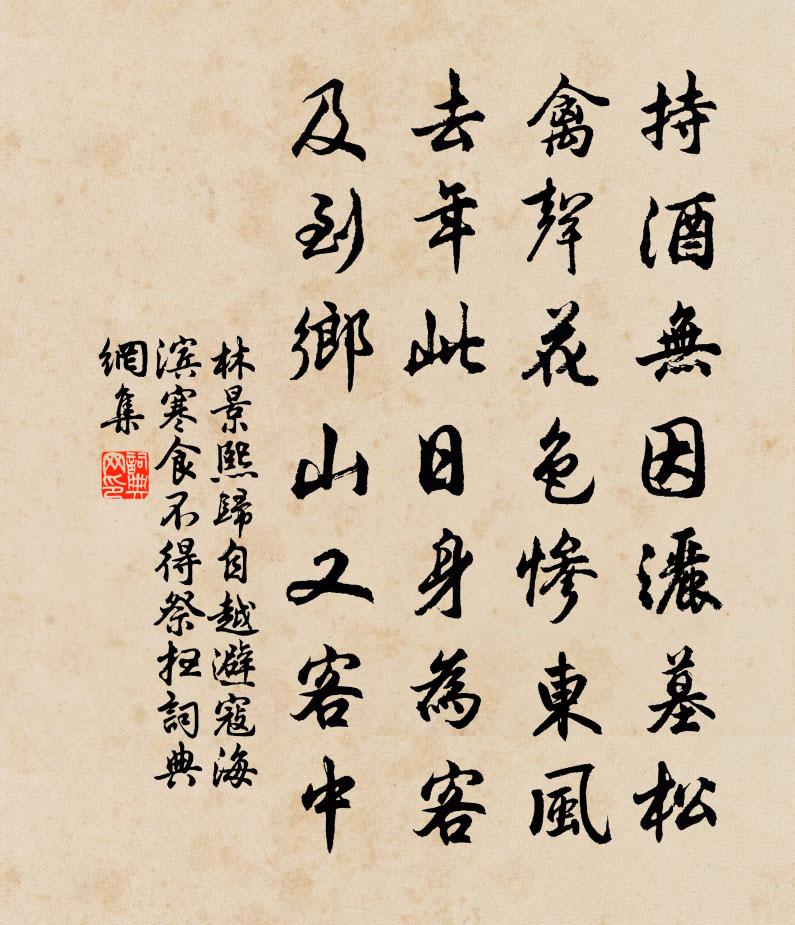 持酒無因灑墓松
禽聲花色慘東風
去年此日身為客
及到鄉山又客中
林景熙歸自越避寇海
滨寒食不得祭扫詞典
網集
詞典网印